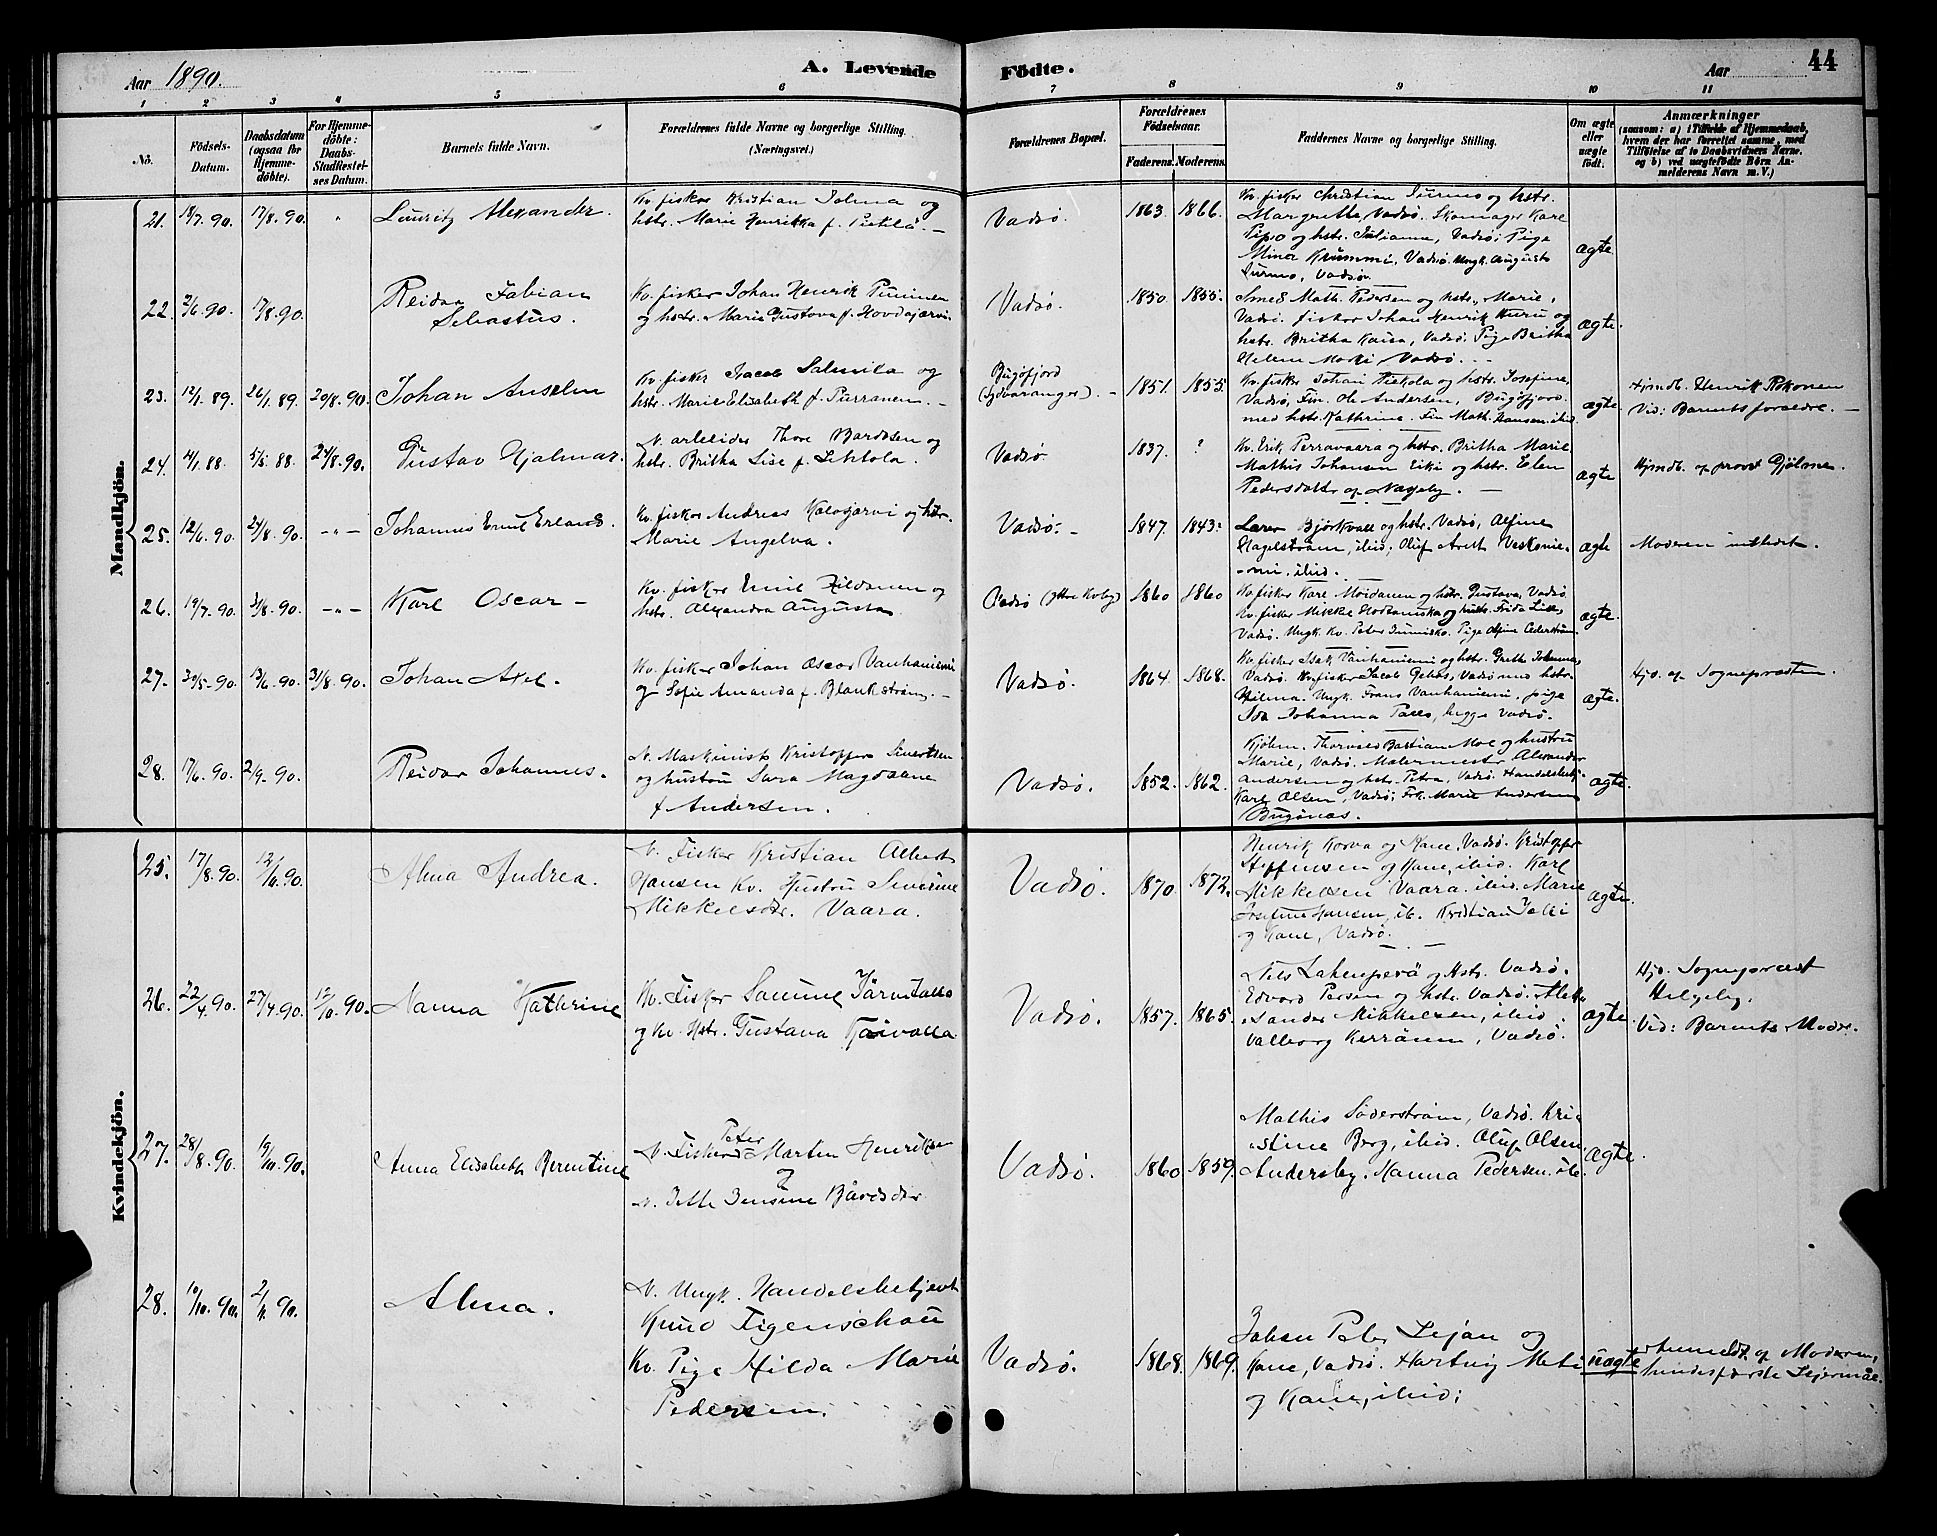 Aar 1890.
A. Levende
Födte.
Aar
44
1 2 3 4 5 6 7 8 9 10 11
No.
Födsels-
Datum.
Daabsdatum
(ogsaa for
Hjemme-
döbte).
For Hjemme-
döbte:
Daabs-
Stadfæstel-
ses Datum.
Barnets fulde Navn.
Forældrenes fulde Navne og borgerlige Stilling.
(Næringsvei.)
Forældrenes Bopæl.
Forældrenes
Födselsaar.
Faderens. Moderens.
Faddernes Navne og borgerlige Stilling.
Om ægte
eller
uægte
födt.
Anmærkninger
(saasom: a) i Tilfælde af Hjemmedaab,
hvem der har forrettet samme, med
Tilföielse af to Daabsvidners Navne,
og b) ved uægtefödte Börn An-
melderens Navn m. V.)
Mandkjön.
21. 18/7.90. 17/8.90. " Lauritz Alexander.
Kv. fisker Kristian Tolma og
hstr. Marie Henrikka f.
Vadsö. 1863. 1866.
Kv. fisker Christian Turmo og hstr.
Margretha, Vadsö. Skomager Karl
og hstr. Julianne, Vadsö; Pige
Mina Krümmi, Vadsö. Ungk. August
Turmo, Vadsö.
ægte
22. 2/6.90. 17/8.90. Reidar Fabian
Sebastus.
Kv. fisker Johan Henrik Puminen
og hstr. Marie Gustava f.
Vadsö. 1850. 1855.
Smed Math. Pedersen og hstr. Marie,
Vadsö. fisker Johan Henrik Kuru og
hstr. Britha Kaisa, Vadsö. Pige Britha
Helene Vadsö.
ægte.
23. 12/1.89. 26/1.89. 20/8.90. Johan Anselm
Kv. fisker Jacob Salmila og
hstr. Marie Elisabeth f. Purranen.
Bugöfjord
(Sydvaranger). 1851. 1855.
Kv. fisker Johan og hstr. Josefine,
Vadsö, Fin. Ole Andersen, Bugöfjord
med hstr. Kathrine. Fin Math. Hansen, ibid
ægte.
Hjmdb. Henrik Rokonen
Vid: Barnets forældre.
24. 4/1.88. 5/5.88. 24/8.90. Gustav Hjalmar.
N. arbeider Thore Bardsen og
hstr. Britha Lise f. Lehtola.
Vadsö 1837. ?
Kv. Erik Perravaara og hstr. Britha Marie
Mathis Johansen Eiki og hstr. Elen
Pedersdatter af Næseby.
ægte
Hjmdb. af provst Gjölme.
25. 12/6.90. 24/8.90. -"- Johannes Emil Erland.
Kv. fisker Andreas Kalvojarvi og hstr.
Marie Angelva.
Vadsö. 1847. 1843.
Lærer Björkvall og hstr. Vadsö, Alfine
Hagelström, ibid; Oluf Aret
ibid.
ægte
Moderen indledet.
26. 19/7.90. 31/8.90. -"- Karl Oscar -
Kv. fisker Emil og
hstr. Alexandra Augusta
Vadsö (Ytre Kvby) 1860 1860
Kv. fisker Karl og hstr. Gustava, Vadsö
Kv. fisker Mikkel og hstr. Frida Lise,
Vadsö. Ungk. Kv. Peter Pige Alfine Cederström.
ægte.
27. 30/5.90. 13/6.90. 31/8.90. Johan Axel.
Kv. fisker Johan Oscar Vanhaniemi
og Sofie Amanda f. Blankström.
Vadsö. 1864 1868.
Kv. fisker Isak Vanhaniemi og hstr. Grethe Johanna,
Vadsö. Kv. fisker Jacob Vadsö med hstr.
Hilma. Ungk. Frans Vanhaniemi, pige
Ida Johanna begge Vadsö.
ægte.
Hjd. af Sognepræsten.
28. 17/6.90. 2/9.90. Reidar Johannes.
N. Maskinist Kristoffer Sivertsen
og hustru Sara Magdalene
f. Andersen.
Vadsö. 1852. 1862.
Kjöbm. Thorvald Bastian Moe og hustru
Marie, Vadsö. Malermester Alexander
Andersen og hstr. Petra, Vadsö. Handelsbetj.
Karl Olsen, Vadsö; Frk. Marie Andersen
Bugönæs.
ægte.
Kvindekjön.
25. 17/8.90. 12/10.90. Alma Andrea.
N. Fisker Kristian Albert
Hansen Kv. Hustru Severine
Mikkelsdr. Vaara.
Vadsö. 1870. 1872.
Henrik Korva og Kone, Vadsö. Kristoffer
Steffensen og Kone, ibid. Karl
Mikkelsen Vaara. ibid. Marie
Josefine Hansen, ib. Kristian
og Kone, Vadsö.
ægte.
26. 22/4.90. 27/4.90. 12/10.90. Nanna Kathrine
Kv. Fisker Samuel
og Kv. Hstr. Gustava
Vadsö. 1857. 1865.
Nils Lahenperä og Hstr. Vadsö.
Edvard Persen og hstr. Vadsö. Alek-
sander Mikkelsen, ibid.
Valborg Kerränen, Vadsö.
ægte.
Hjd. Sognepræst
Helgeby.
Vid: Barnets Moder.
27. 28/8.90. 19/10.90. Anna Elisabeth Berentine
N. Fisker Peter Morten Henriksen
og
N. Jette Jensine Bårdsdr
Vadsö. 1860. 1859.
Mathis Söderström, Vadsö. Kri-
stine Berg, ibid. Oluf Olsen
Andersby. Hanna Pedersen. ib.
ægte.
28. 10/10.90. 2/11.90. Alma.
N. Ungk. Handelsbetjent
Knud Figenschou
Kv. Pige Hilda Marie
Pedersen.
Vadsö. 1868. 1869.
Johan Peter Lejan og
Kone, Vadsö. Hartvig
og Kone, ibid;
uægte
Anmeldt af Moderen,
hendes første Lejermål.